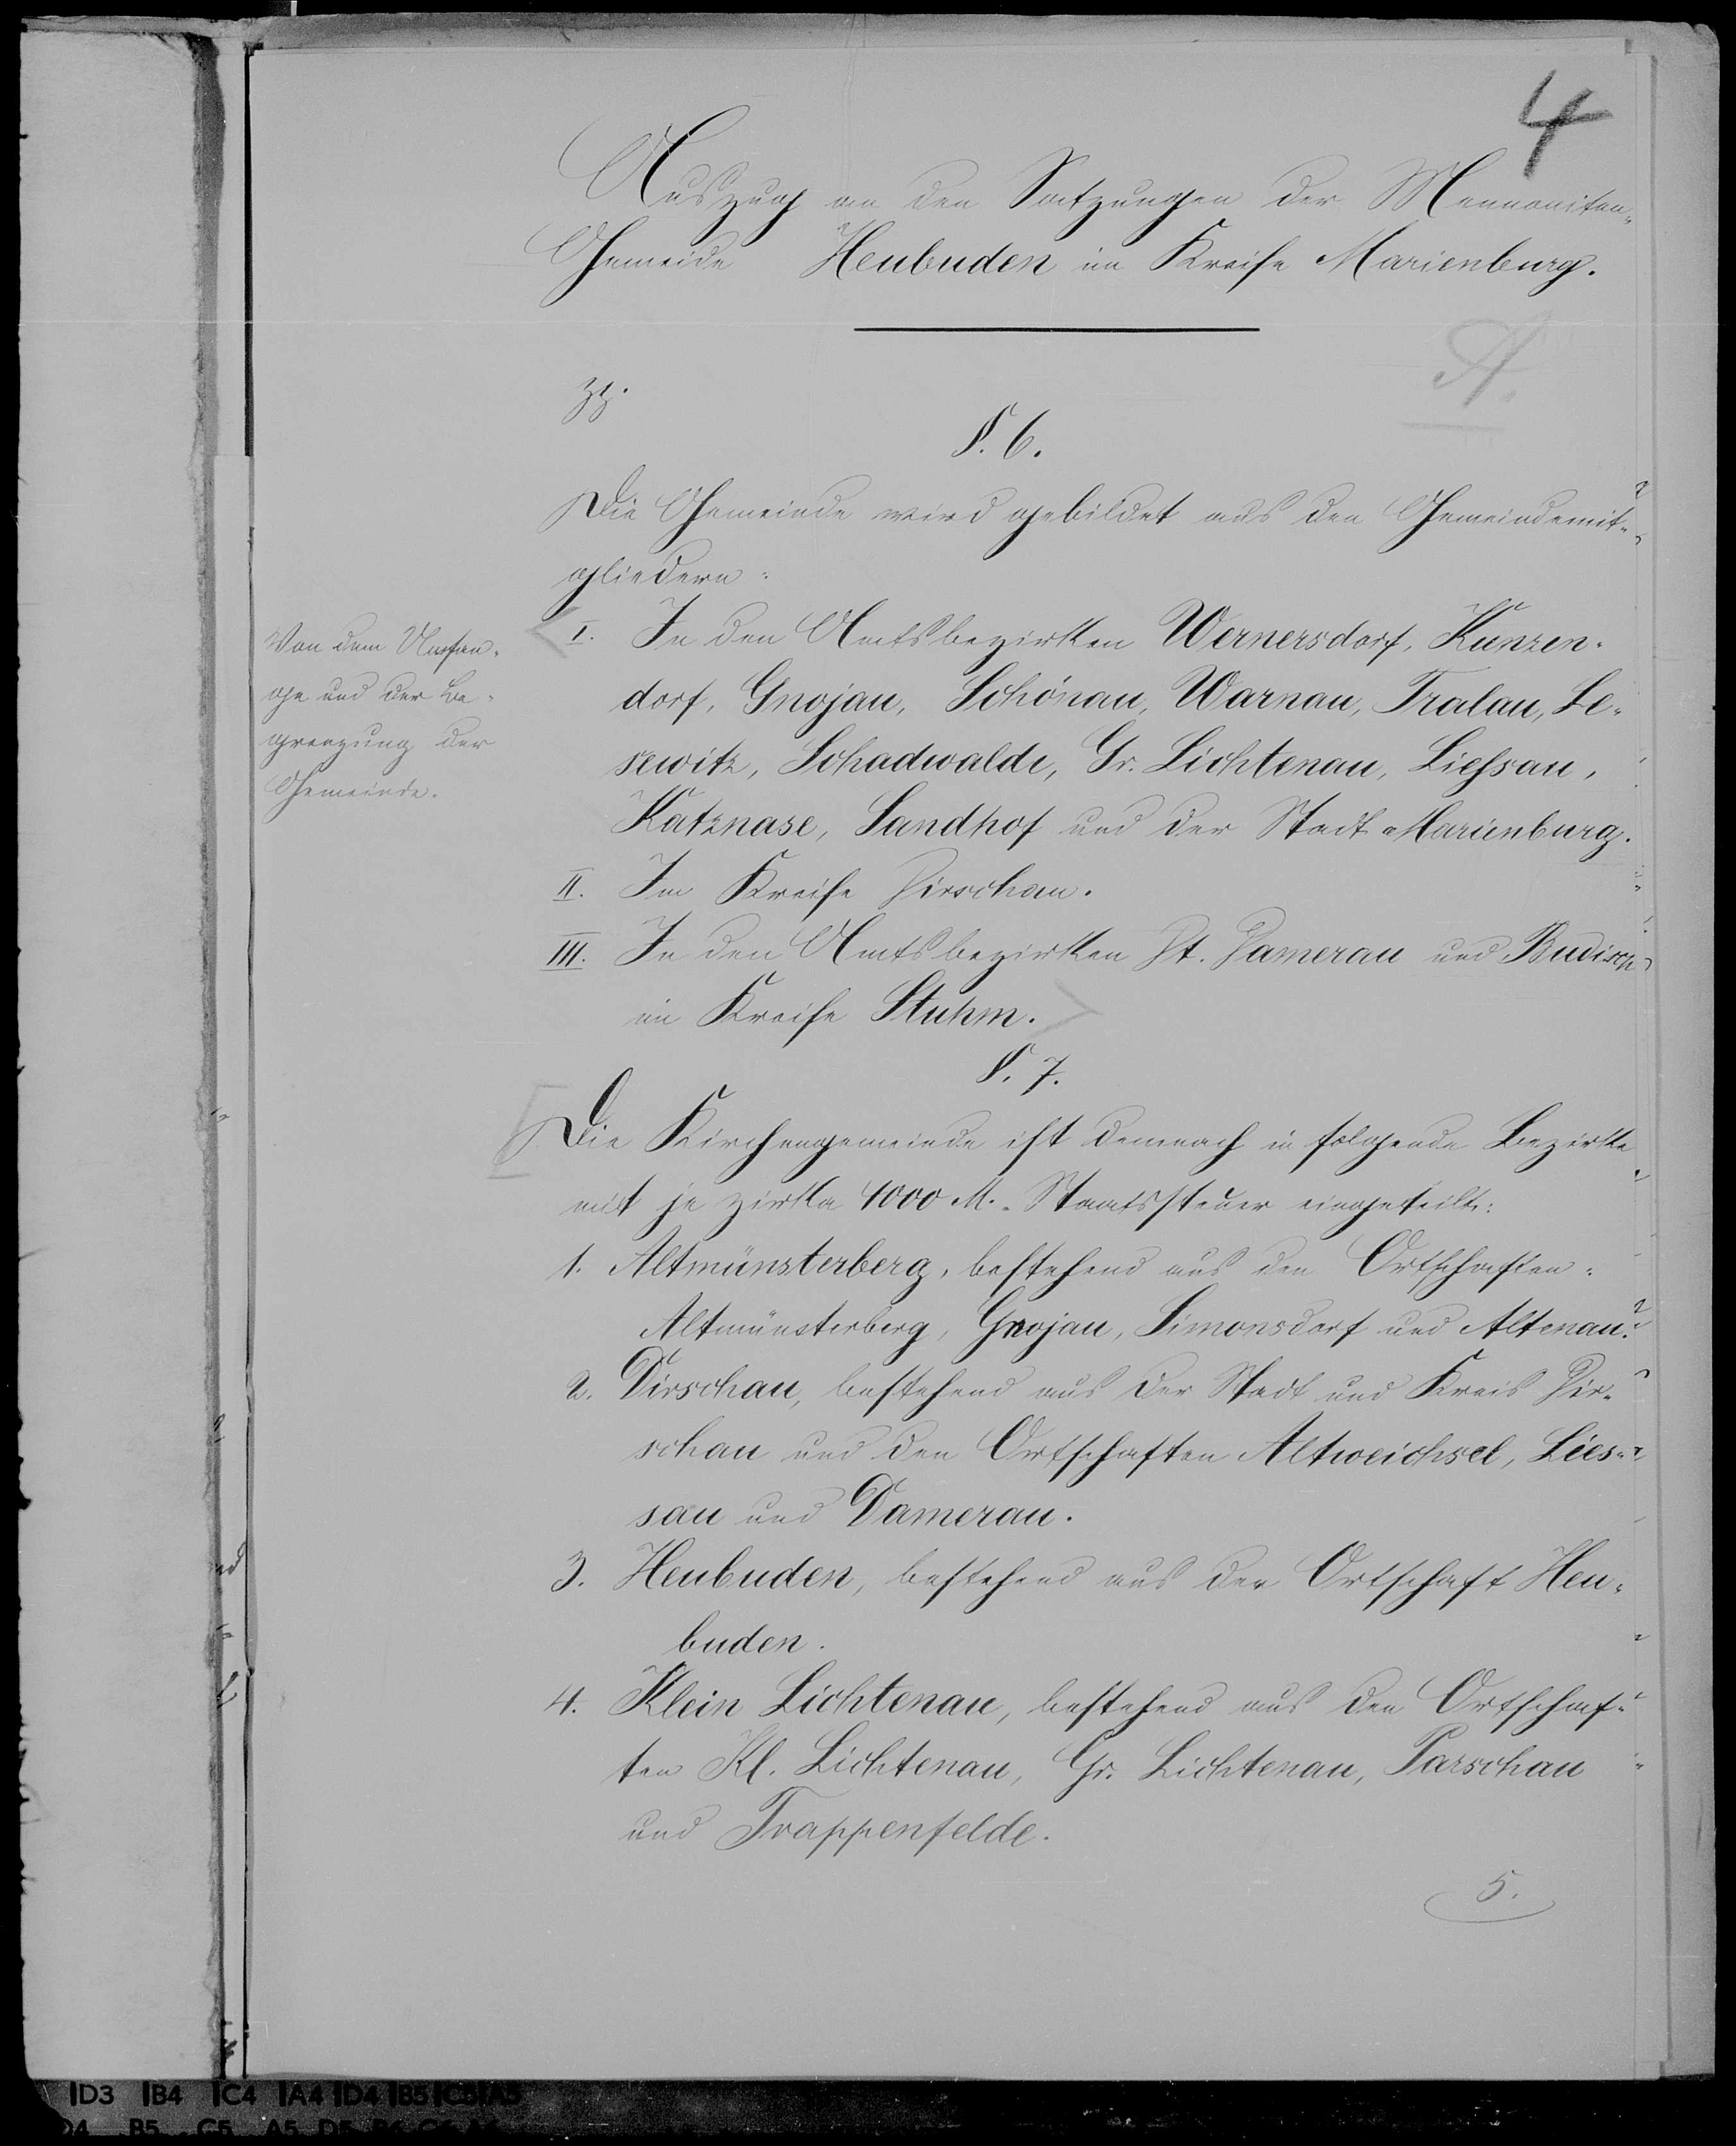 4
Auszug an den Satzungen der Mennoniten-
Gemeide Heubuden im Kreise Marienburg.
A.
pp.
§. 6.
Die Gemeinde wird gebildet aus den Gemeindemit-
gliedern:
Von dem Umfan-
ge und der Be-
grenzung der
Gemeinde.
I. In den Amtsbezirken Wernersdorf, Kunzen-
dorf, Gnojau, Schönau, Warnau, Tralau, Le-
sewitz, Schadwalde, Gr. Lichtenau, Liessau,
Katznase, Sandhof und der Stadt Marienburg.
II. Im Kreise Dirschau.
III. In den Amtsbezirken Dt. Damerau und Budisch
im Kreise Stuhm.
§. 7.
Die Kirchengemeinde ist demnach in folgende Bezirke
mit je zirka 4000 M. Staatssteuer eingeteilt:
1. Altmünsterberg, bestehend aus den Ortschaften:
Altmünsterberg, Gnojau, Simonsdorf und Altenau.
2. Dirschau, bestehend aus der Stadt und Kreis Dir-
schau und den Ortschaften Altweichsel, Lies-
sau und Damerau.
3. Heubuden, bestehend aus der Ortschaft Heu-
buden.
4. Klein Lichtenau, bestehend aus den Ortschaf-
ten Kl. Lichtenau, Gr. Lichtenau, Parschau
und Trappenfelde.
5.
D3 B4 C4 A4 D4 B5 C5 A5
D4 B5 C5 A5 D5 B6 C6 A6